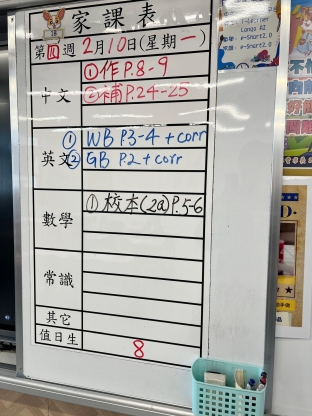 家課表
第四週2月10日(星期一)
中文
①作P.8-9
②補P.24-25
英文
① WB P3-4 + corr
② GB P2 + corr
數學
①校本(2a)P.5-6
常識
其它
值日生
8
e-Smart2.0
e-Smart2.0